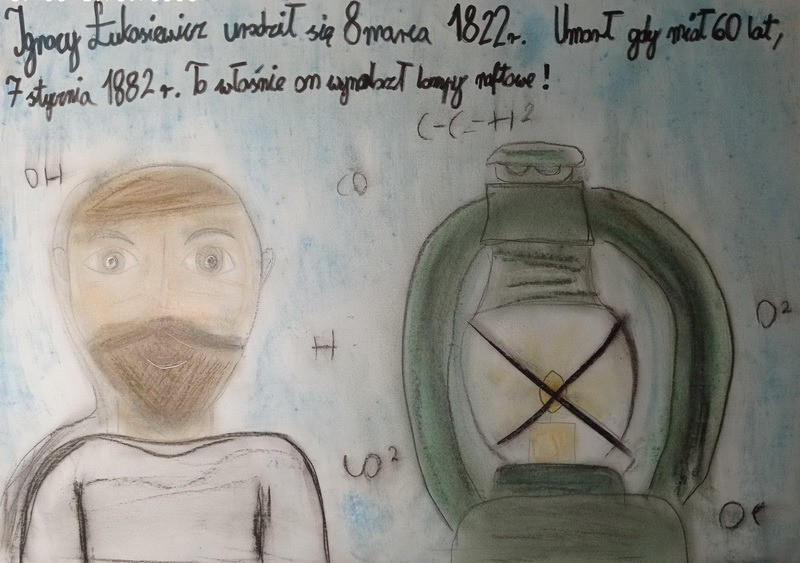 Ignacy Łukasiewicz urodził się 8 marca 1822r. Umarł gdy miał 60 lat,
7 stycznia 1882 r. To właśnie on wynalazł lampy naftowe!
C-C-H²
OH
CO
O²
H
CO²